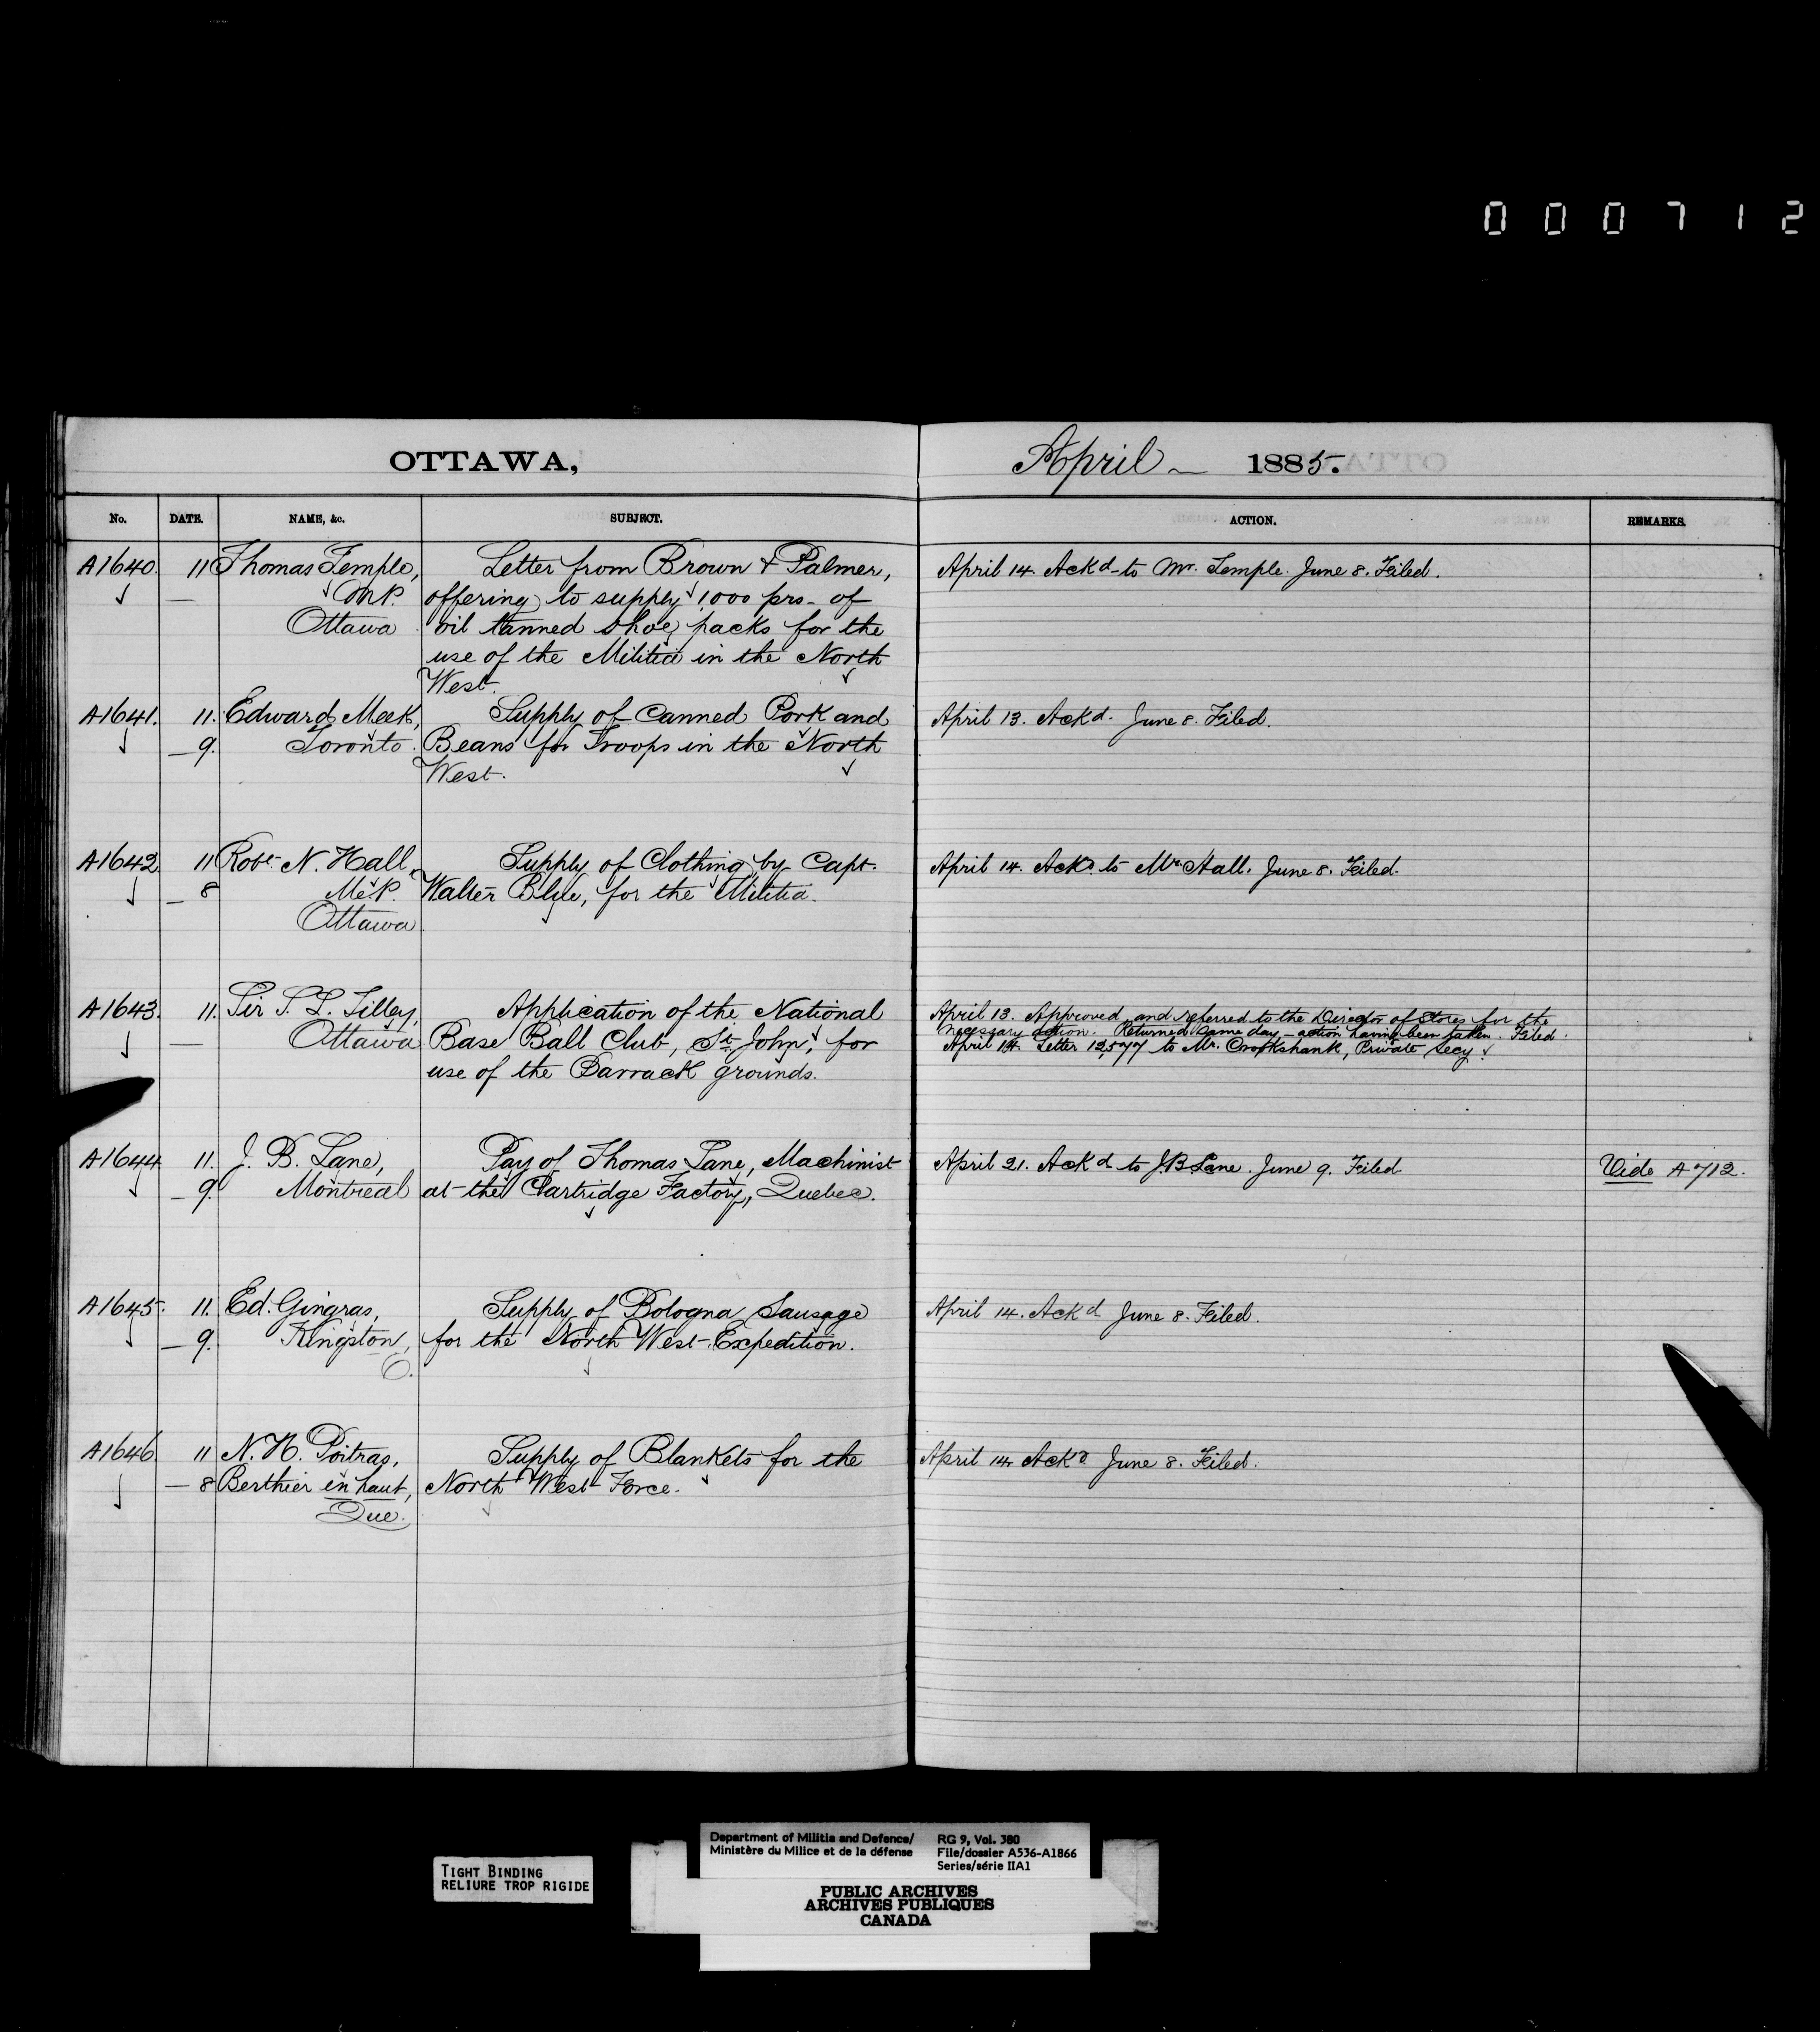 000712
OTTAWA,
April 1885.
No. DATE. NAME, &c. SUBJECT. ACTION. REMARKS.
A1640. 11 Thomas Temple, Letter from Brown & Palmer, April 14. Ackd to Mr. Temple. June 8. Filed.
— M.P. offering to supply 1,000 prs. of
Ottawa oil tanned shoe packs for the
use of the Militia in the North
West.
A1641. 11. Edward Meek, Supply of Canned Pork and April 13. Ackd. June 8. Filed.
— 9. Toronto. Beans for Troops in the North
West.
A1642 11 Robt. N. Hall, Supply of Clothing by Capt. April 14. Ackd to Mr Hall. June 8. Filed.
— 8 M.P. Walter Blue, for the Militia.
Ottawa
A1643. 11. Sir S. L. Tilley, Application of the National April 13. Approved and referred to the Director of Stores for the
— Ottawa Base Ball Club, St. John, for necessary action. Returned same day - action having been taken. Filed.
use of the Barrack grounds. April 14. Letter 12,577 to Mr. Crookshank, Private Secy.
A1644 11. J. B. Lane, Pay of Thomas Lane, Machinist April 21. Ackd to J.B Lane. June 9. Filed Vide A 712.
— 9. Montreal at the Cartridge Factory, Quebec.
A1645. 11. Ed. Gingras, Supply of Bologna Sausage April 14. Ackd June 8. Filed.
— 9. Kingston, for the North West Expedition.
O.
A1646 11 N. H. Poitras, Supply of Blankets for the April 14 Ackd June 8. Filed.
— 8 Berthier en haut, North West Force.
Que.
TIGHT BINDING
RELIURE TROP RIGIDE
Department of Militia and Defence/
Ministère du Milice et de la défense
RG 9, Vol. 380
File/dossier A536-A1866
Series/série IIA1
PUBLIC ARCHIVES
ARCHIVES PUBLIQUES
CANADA